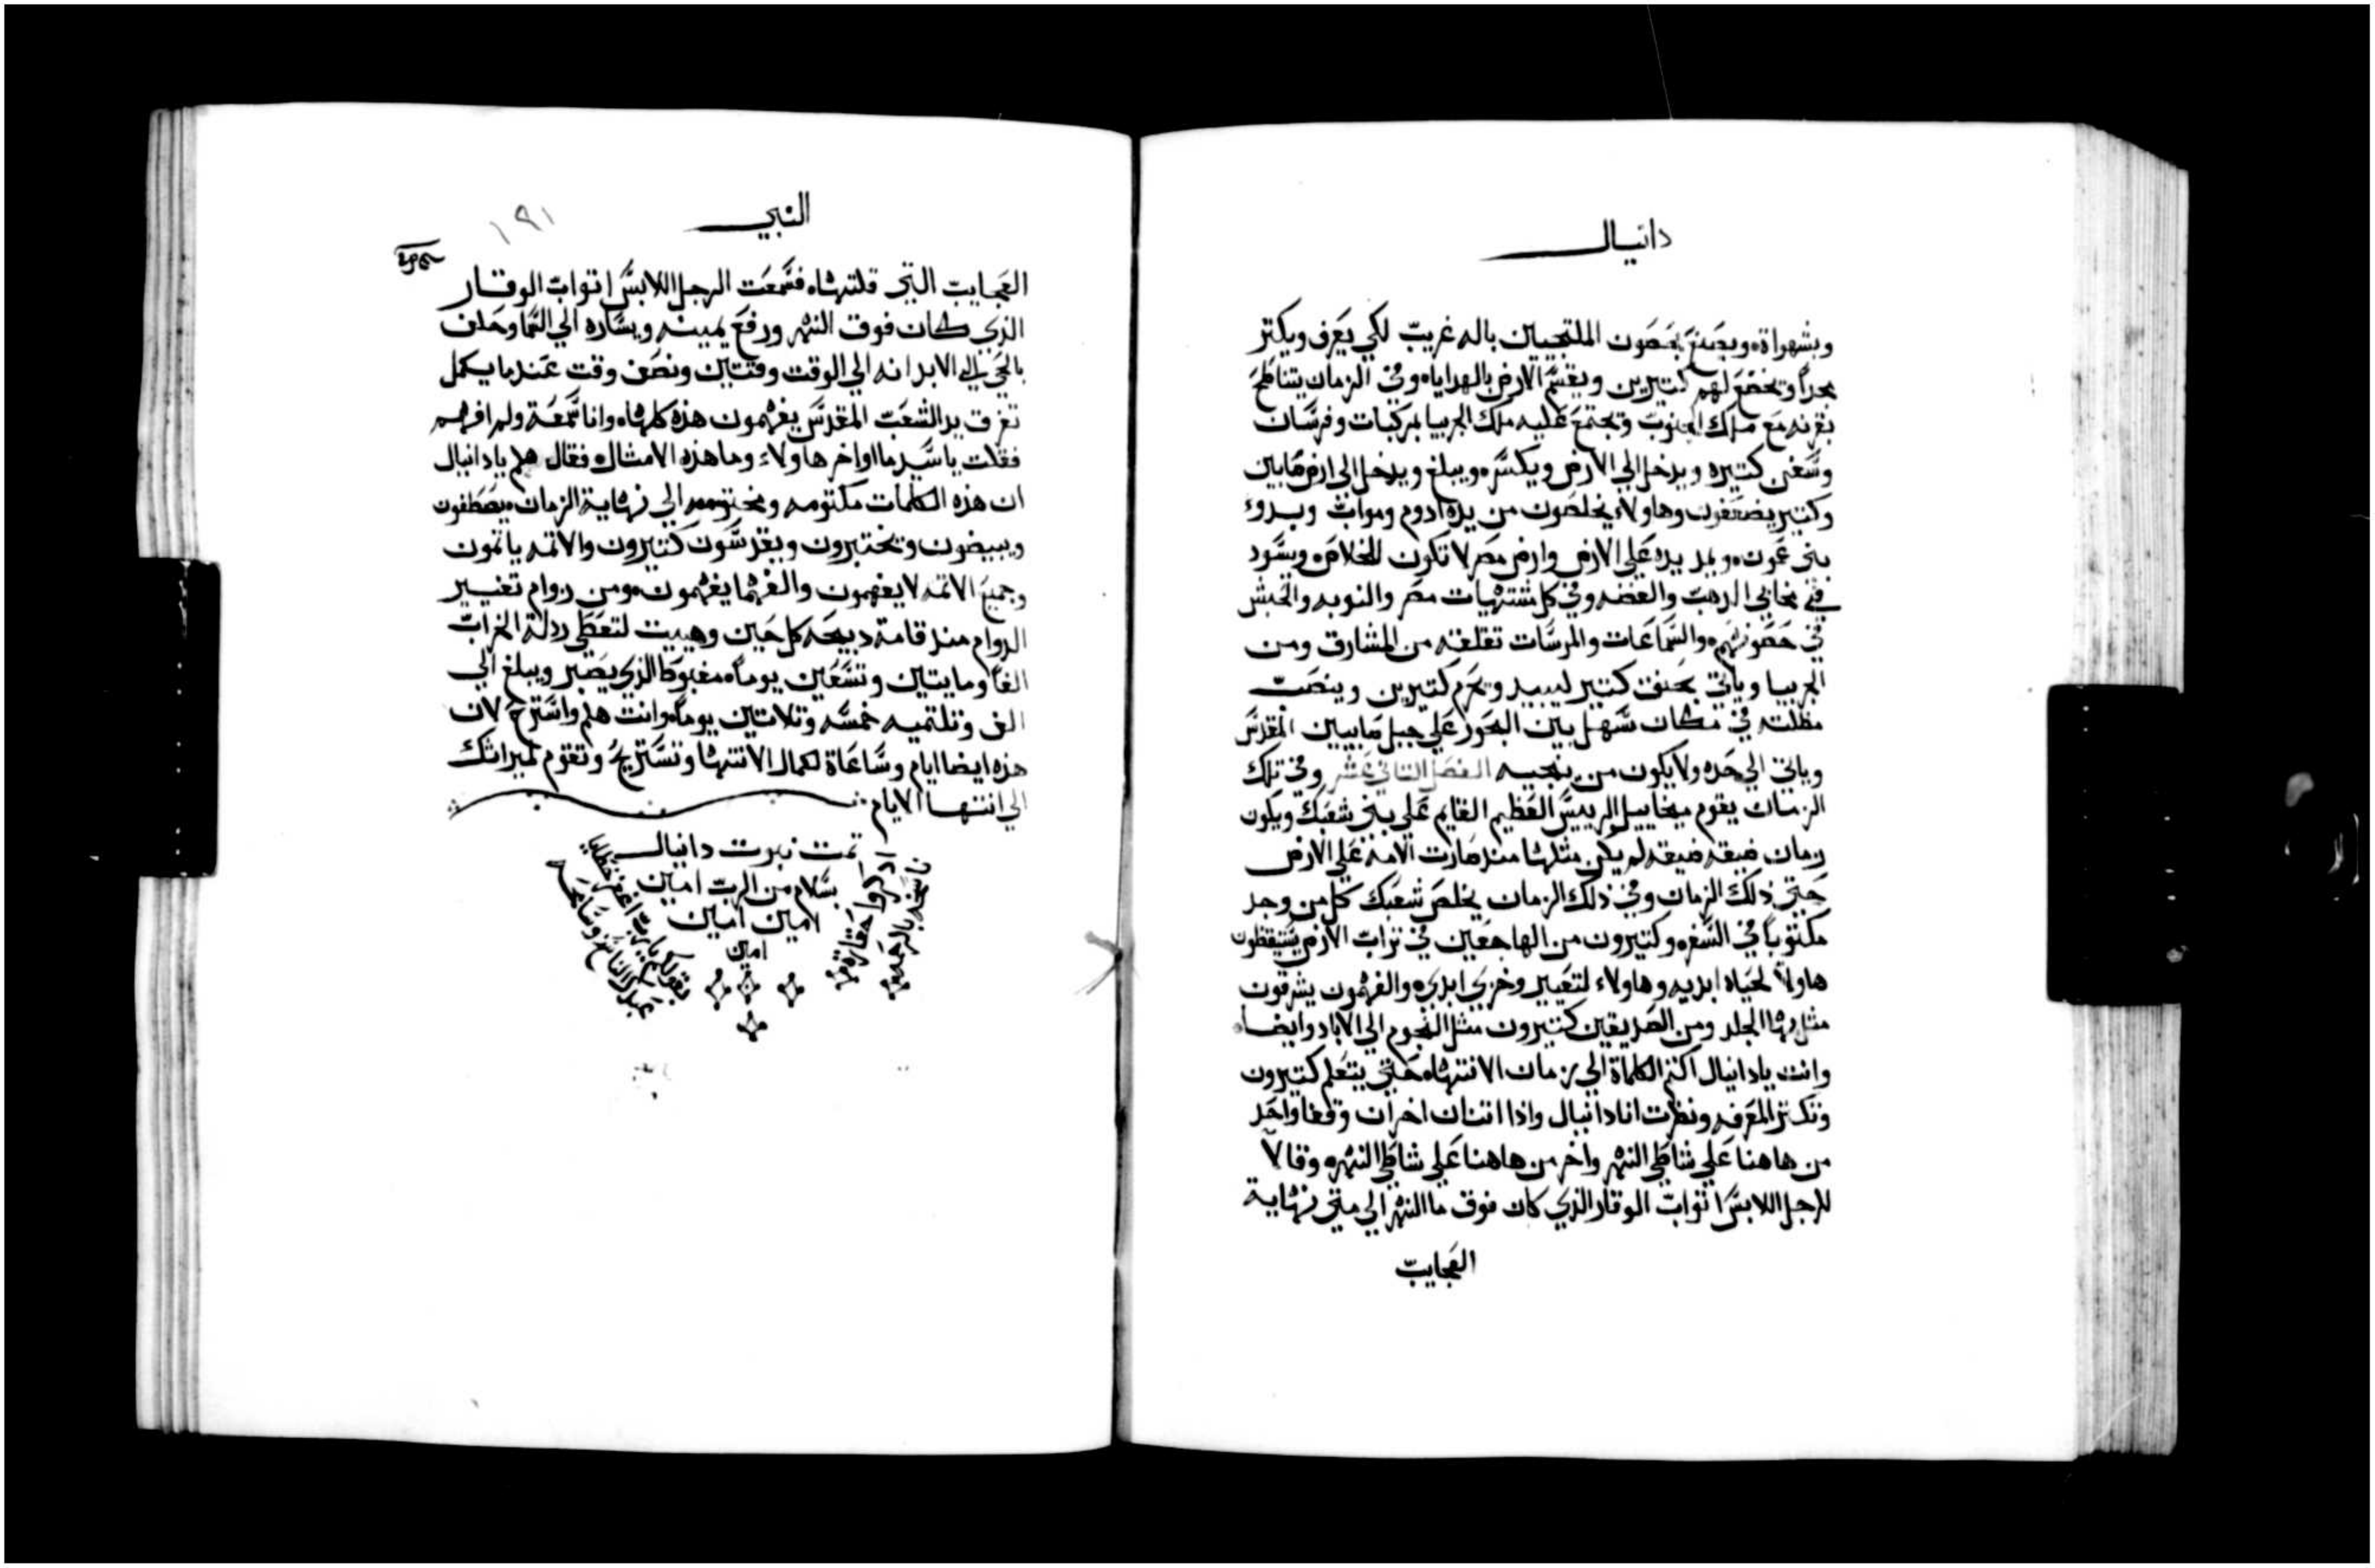 دانيال
وبشهواة ويصنع بحصون الملتجيين باله غريب لكي يعرف ويكتر
مجداً وتخضع لهم كتيرين ويقسم الارض بالهدايا وفي الزمان يتناطح
بقرنه مع ملك الجنوب ويجتمع عليه ملك الجربيا بمركبات وفرسان
وسفن كتيره ويدخل الي الارض ويكسره ويبلغ ويدخل الي ارض صابين
وكتير يضعفون وهاولاء يخلصون من يده ادوم ومواب وبدوء
بني عمون ويمد يده علي الارض وارض مصر لا تكون للخلاص ويسود
في مخابي الدهب والفضه وفي كل مشتهيات مصر والنوبه والحبش
في حصونهم والسماعات والمرسات تقلقه من المشارق ومن
الجربيا وياتي بحنق كتير ليبيد ويحرم كتيرين وينصب
مظلته في مكان سهل بين البحور علي جبل صابيين المقدس
وياتي الي حده ولا يكون من ينجيه الفصل التاني عشر وفي تلك
الزمان يقوم ميخاييل الرييس العظيم القايم علي بني شعبك ويكون
زمان ضيقه ضيقه لم يكن مثلها منذ صارت الامه علي الارض
حتي ذلك الزمان وفي ذلك الزمان يخلص شعبك كل من وجد
مكتوباً في السفر وكتيرون من الهاجعين في تراب الارض يستيقظون
هاولا لحياه ابديه وهاولاء لتعيير وخزي ابدي والفهمون يشرقون
مثل بها الجلد ومن الصديقين كتيرون مثل النجوم الي الاباد وايضاً
وانت يا دانيال اكتم الكلماة الي زمان الانتها حتي يتعلم كتيرون
وتكتر المعرفه ونظرت انا دانيال واذا اتنان اخران وقفا واحد
من هاهنا علي شاطي النهر واخر من هاهنا علي شاطي النهر وقالا
للرجل اللابس اتواب الوقار الذي كان فوق ما النهر الي متي نهاية
العجايب
النبي
١٩١
العجايب التي قلتها فسمعت الرجل اللابس اتواب الوقار
الذي كان فوق النهر ورفع يمينه ويساره الي السما وحلف
بالحي الي الابد انه الي الوقت وقتين ونصف وقت عندما يكمل
تفرق يد الشعب المقدس يفهمون هذه كلها وانا سمعة ولم افهم
فقلت يا سيد ما اواخر هاولاء وما هذه الامثال فقال هلم يا دانيال
ان هذه الكلمات مكتومه ومختومه الي نهاية الزمان يصطفون
ويبيضون ويختبرون ويقدسون كتيرون والاتمه ياتمون
وجميع الاتمه لا يفهمون والفهما يفهمون ومن دوام تغيير
الدوام منذ قامة دبيحه كل حين وهييت لتعطي ردلة الخراب
الفاً ومايتين وتسعين يوماً مغبوط الذي يصبر ويبلغ الي
الف وتلتميه خمسه وتلاتين يوماً وانت هلم واسترح لان
هذه ايضا ايام وساعاة لكمال الانتها وتستريح وتقوم لميراتك
الي انتها الايام
تمت نبوت دانيال
بسلام من الرب امين
امين امين
امين
اذكروا حقارة
ناسخه بالرحمه